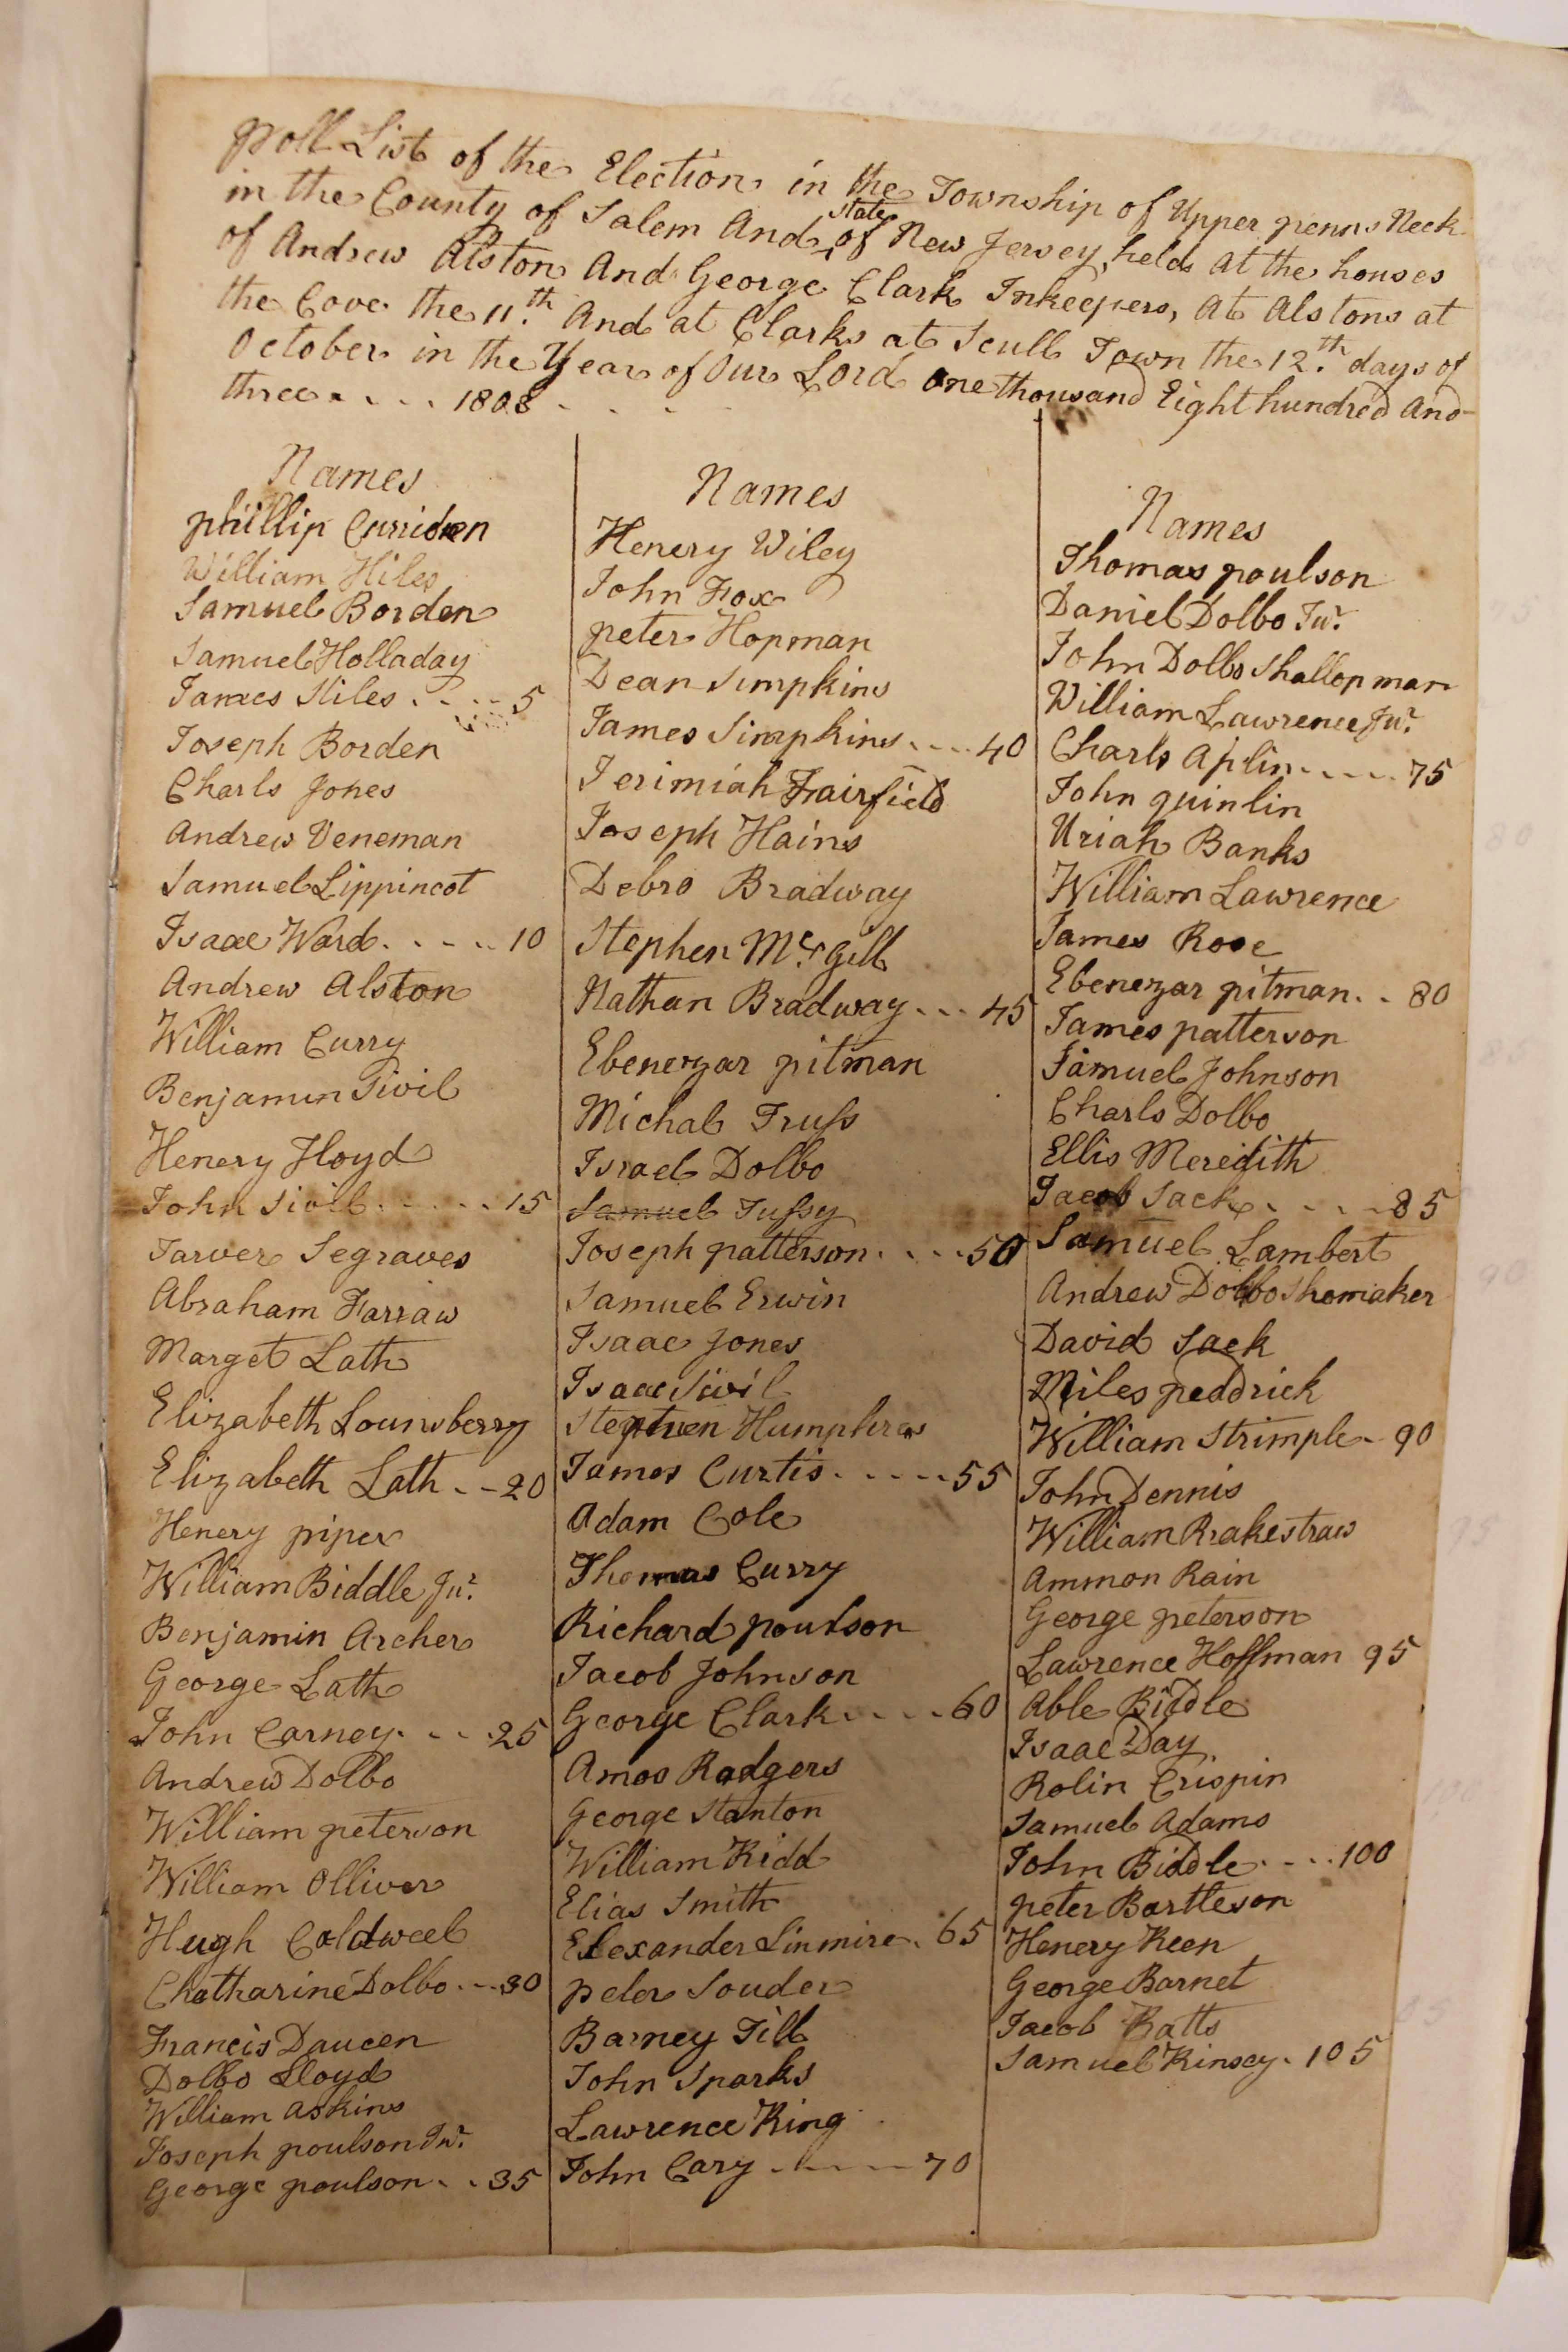 poll List of the Election in the Township of Upper penns Neck
in the County of Salem And state of New Jersey, held at the houses
of Andrew Alston And George Clark Inkeepers, At Alstons at
the Cove the 11.th And at Clarks at Scull Town the 12.th days of
October in the Year of Our Lord One thousand Eight hundred And
three . . . . 1803 . . . .
Names
phillip Curriden
William Hiles
Samuel Borden
Samuel Holladay
James Stiles . . . . 5
Joseph Borden
Charls Jones
Andrew Veneman
Samuel Lippincot
Isaac Ward . . . . 10
Andrew Alston
William Curry
Benjamin Sivil
Henery Floyd
John Sivil . . . . . 15
Tarver Segraves
Abraham Farraw
Marget Lath
Elizabeth Lounsberry
Elizabeth Lath . . 20
Henery piper
William Biddle Jur.
Benjamin Archer
George Lath
John Carney . . . 25
Andrew Dolbo
William peterson
William Olliver
Hugh Coldweel
Chatharine Dolbo . . . 30
Francis Daucen
Dolbo Lloyd
William askins
Joseph poulson Jur.
George poulson . . 35
Names
Henery Wiley
John Fox
peter Hopman
Dean Simpkins
James Simpkins . . . . 40
Jerimiah Frairfield
Joseph Hains
Debro Bradway
Stephen Mc. Gill
Nathan Bradway . . . 45
Ebenezar pitman
Michal Truss
Israel Dolbo
Samuel Tussy
Joseph patterson . . . . 50
Samuel Erwin
Isaac Jones
Isaac Sivil
Stephen Humphres
James Curtis . . . . . 55
Adam Cole
Thomas Curry
Richard poulson
Jacob Johnson
George Clark . . . . 60
Amos Rodgers
George Stanton
William Kidd
Elias Smith
Elexander Linmire . 65
peter Souder
Barney Till
John Sparks
Lawrence King
John Cary . . . . . 70
Names
Thomas poulson
Daniel Dolbo Jur.
John Dolbo Shallopman
William Lawrence Jur.
Charls Aplin . . . . . 75
John quinlin
Uriah Banks
William Lawrence
James Rose
Ebenezar pitman . . 80
James patterson
Samuel Johnson
Charls Dolbo
Ellis Meredith
Jacob Sack . . . . . 85
Samuel Lambert
Andrew Dolbo Shomaker
David Sack
Miles peddrick
William Strimple . 90
John Dennis
William Rakestraw
Ammon Rain
George peterson
Lawrence Hoffman 95
Able Biddle
Isaac Day
Rolin Crispin
Samuel Adams
John Biddle . . . . 100
peter Bartleson
Henery Keen
George Barnet
Jacob Batts
Samuel Kinsey . 105